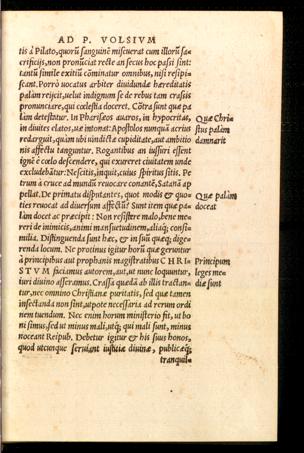 AD P. VOLSIVM
tis à Pilato, quorũ sanguinẽ miscuerat cum illorũ sa-
crificijs, non pronũciat recte an secus hoc passi sint:
tantũ simile exitiũ cõminatur omnibus, nisi resipi-
scant. Porrò uocatus arbiter diuidundæ hæreditatis
palàm reijcit, uelut indignum se de rebus tam crassis
pronunciare, qui cœlestia doceret. Cõtra sunt quæ pa-
làm detestatur. In Pharisæos auaros, in hypocritas,
in diuites elatos, uæ intonat: Apostolos nunquã acrius
redarguit, quàm ubi uindictæ cupiditate, aut ambitio
nis affectu tanguntur. Rogantibus an iussuri essent
ignẽ è cœlo descendere, qui exureret ciuitatem unde
excludebãtur: Nescitis, inquit, cuius spiritus sitis. Pe
trum à cruce ad mundũ reuocare conantẽ, Satanã ap
pellat. De primatu disputantes, quot modis & quo-
ties reuocat ad diuersum affectũ? Sunt item quæ pa-
làm docet ac præcipit: Non resistere malo, bene me-
reri de inimicis, animi mansuetudinem, aliaq; consi-
milia. Distinguenda sunt hæc, & in suũ quæq; dige-
renda locum. Ne protinus igitur horũ quæ geruntur
à principibus aut prophanis magistratibus CHRI-
STVM faciamus autorem, aut, ut nunc loquuntur,
iuri diuino asseramus. Crassa quædã ab illis tractan-
tur, nec omnino Christianæ puritatis, sed quæ tamen
insectanda non sint, utpote necessaria ad rerum ordi
nem tuendum. Nec enim horum ministerio fit, ut bo
ni simus, sed ut minus mali, utq; qui mali sunt, minus
noceant Reipub. Debetur igitur & his suus honos,
quod utcunque seruiant iustitiæ diuinæ, publicæq;
tranquil-
Quæ Chri
stus palàm
damnarit
Quæ palàm
doceat
Principum
leges me-
diæ sunt